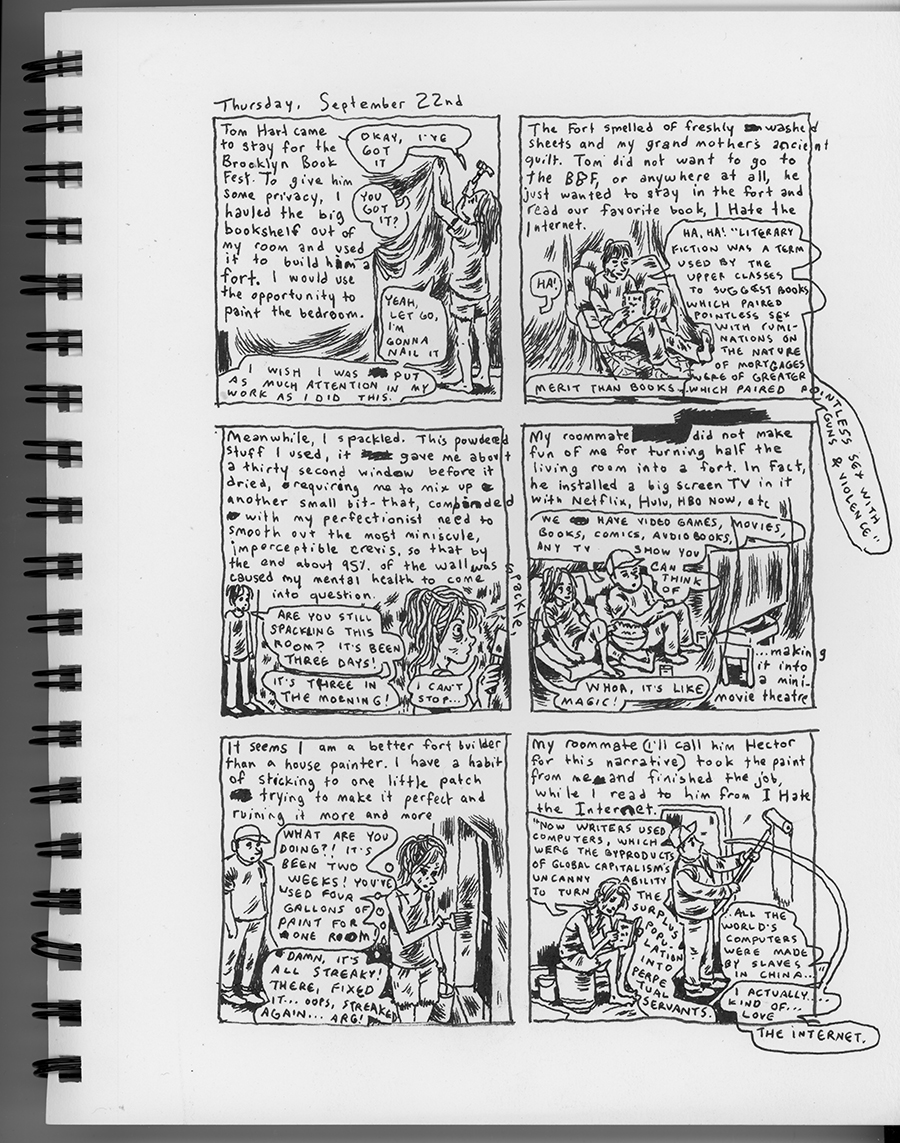 Thursday, September 22nd
Tom Hart came
to stay for the
Brooklyn Book
Fest. To give him
some privacy, I
hauled the big
bookshelf out of
my room and used
it to build him a
fort. I would use
the opportunity to
paint the bedroom.
OKAY, I'VE
GOT
IT
YOU
GOT
IT?
YEAH,
LET GO,
I'M
GONNA
NAIL IT
I WISH I WAS PUT
AS MUCH ATTENTION IN MY
WORK AS I DID THIS.
The Fort smelled of freshly washed
sheets and my grand mother's ancient
quilt. Tom did not want to go to
the BBF, or anywhere at all, he
just wanted to stay in the fort and
read our favorite book, I Hate the
Internet.
HA!
HA, HA! "LITERARY
FICTION WAS A TERM
USED BY THE
UPPER CLASSES
TO SUGGEST BOOKS
WHICH PAIRED
POINTLESS SEX
WITH RUMI-
NATIONS ON
THE NATURE
OF MORTGAGES
WERE OF GREATER
MERIT THAN BOOKS WHICH PAIRED POINTLESS SEX WITH
GUNS & VIOLENCE"
Meanwhile, I spackled. This powdered
stuff I used, it gave me about
a thirty second window before it
dried, requiring me to mix up
another small bit- that, combinded
with my perfectionist need to
smooth out the most miniscule,
imperceptible crevis, so that by
the end about 95% of the wall was
spackle,
caused my mental health to come
into question.
ARE YOU STILL
SPACKLING THIS
ROOM? IT'S BEEN
THREE DAYS!
IT'S THREE IN
THE MORNING!
I CAN'T
STOP...
My roommate did not make
fun of me for turning half the
living room into a fort. In fact,
he installed a big screen TV in it
with Netflix, Hulu, HBO Now, etc
WE HAVE VIDEO GAMES, MOVIES,
BOOKS, COMICS, AUDIOBOOKS,
ANY TV SHOW YOU
CAN
THINK
OF
...making
it into
a mini-
movie theatre
WHOA, IT'S LIKE
MAGIC!
It seems I am a better fort builder
than a house painter. I have a habit
of sticking to one little patch
trying to make it perfect and
ruining it more and more
WHAT ARE YOU
DOING?! IT'S
BEEN TWO
WEEKS! YOU'VE
USED FOUR
GALLONS OF
PAINT FOR
ONE ROOM
DAMN, IT'S
ALL STREAKY!
THERE, FIXED
IT... OOPS, STREAKED
AGAIN... ARG!
My roommate (I'll call him Hector
for this narrative) took the paint
from me and finished the job,
while I read to him from I Hate
the Internet.
"NOW WRITERS USED
COMPUTERS, WHICH
WERE THE BYPRODUCTS
OF GLOBAL CAPITALISM'S
UNCANNY ABILITY
TO TURN THE
SURPLUS
POPU-
LATION
INTO
PERPE
TUAL
SERVANTS.
..ALL THE
WORLD'S
COMPUTERS
WERE MADE
BY SLAVES
IN CHINA...
I ACTUALLY...
KIND OF...
LOVE
THE INTERNET.